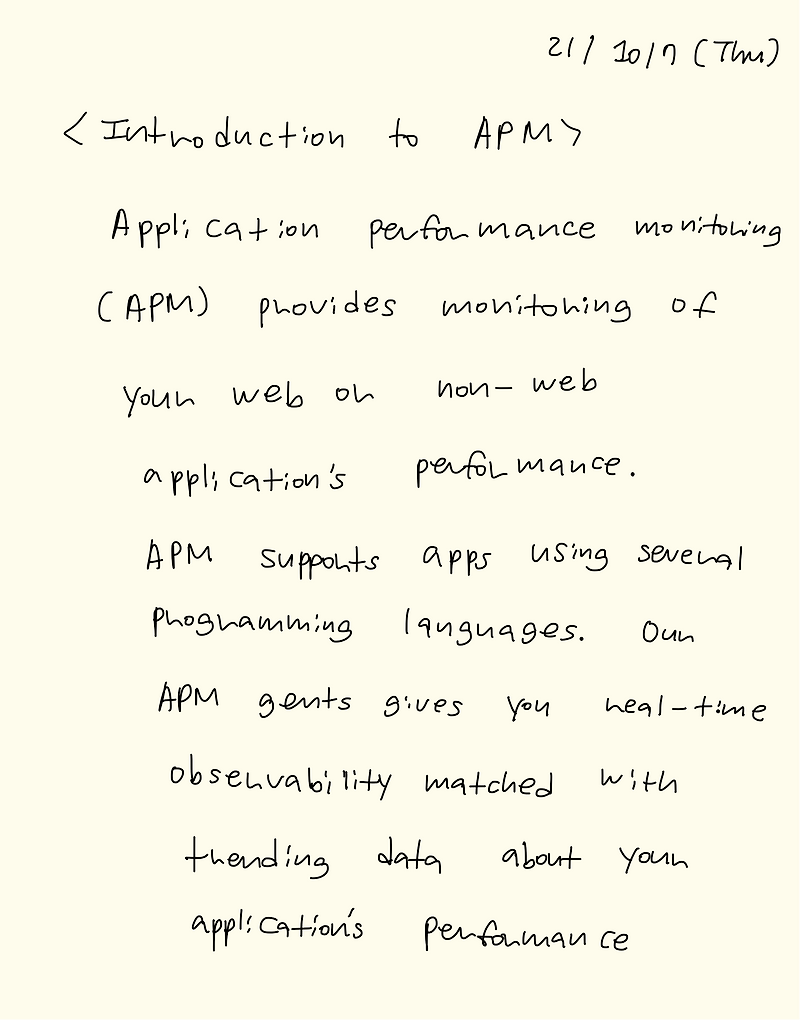 21/10/7 (Thu)
<Introduction to APM>
Application performance monitoring
(APM) provides monitoring of
your web or non-web
application's performance.
APM supports apps using several
programming languages. Our
APM gents gives you real-time
observability matched with
trending data about your
application's performance